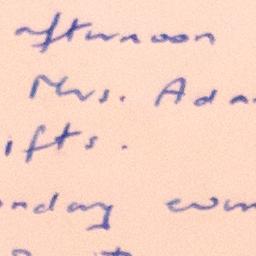 afternoon
Mrs. Ada
ifts.
onday even